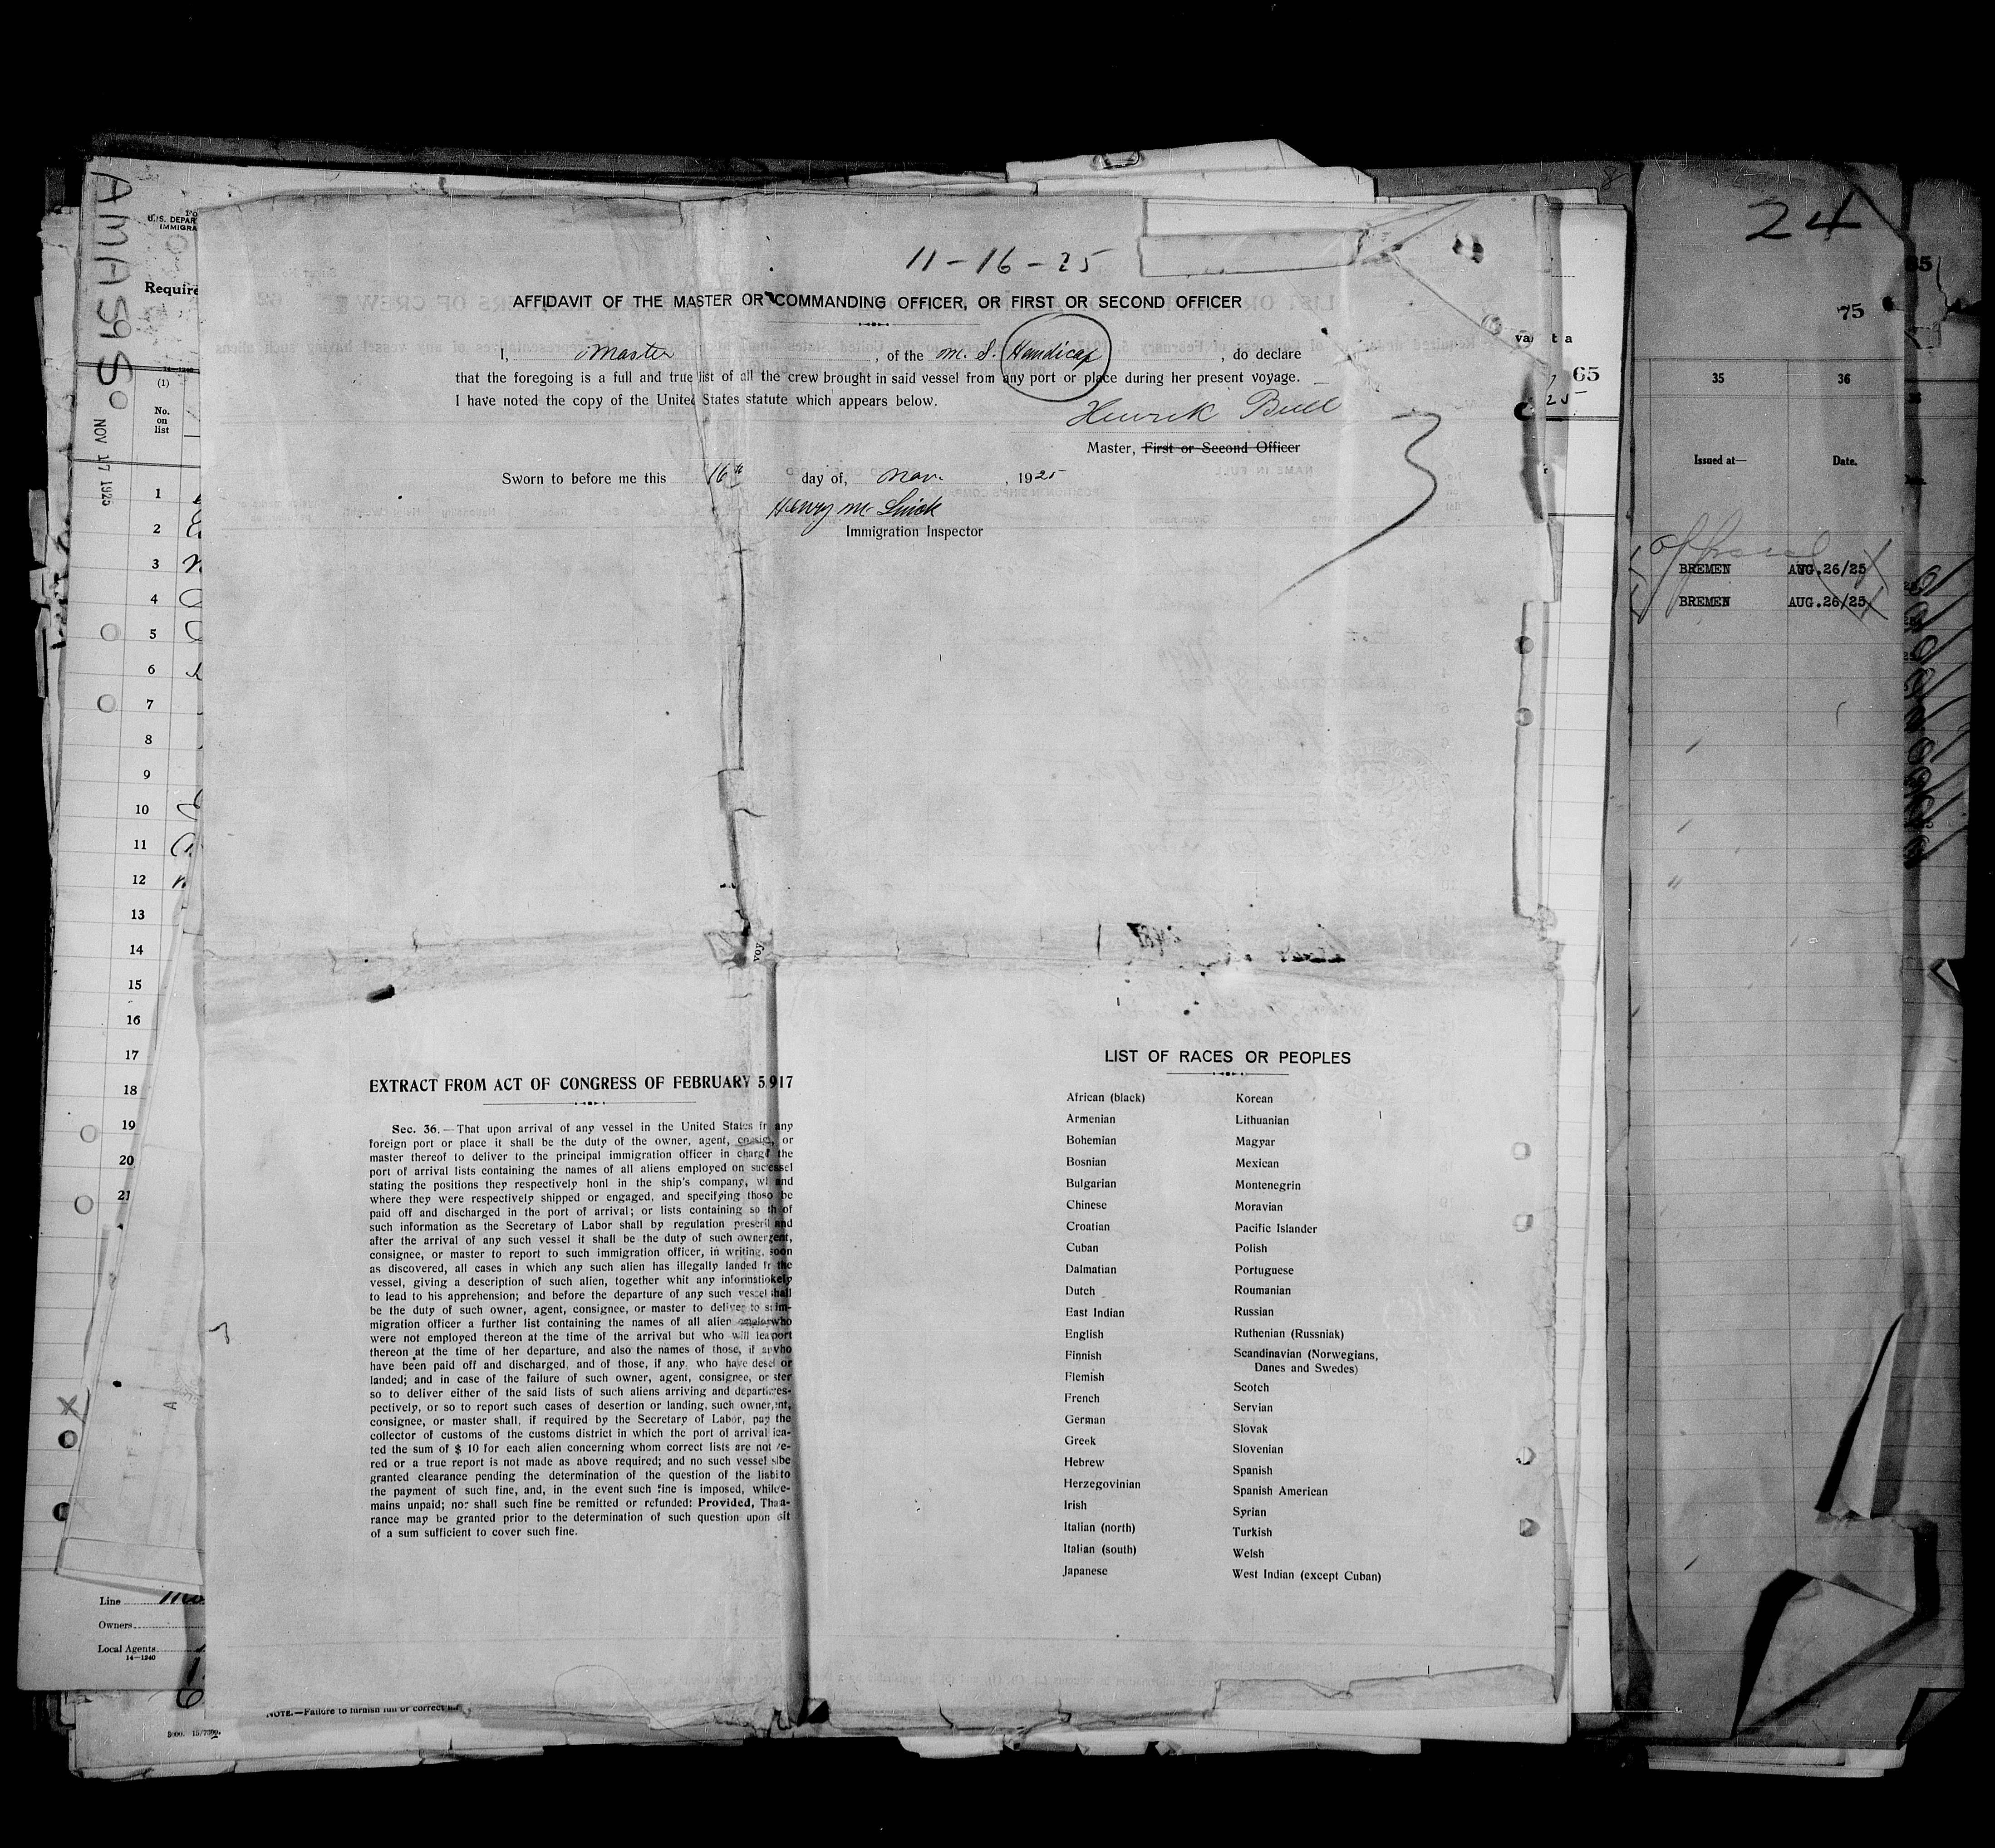 11-16-25
AFFIDAVIT OF THE MASTER OR COMMANDING OFFICER, OR FIRST OR SECOND OFFICER
I, Master, of the M. S. Handicap, do declare
that the foregoing is a full and true list of all the crew brought in said vessel from any port or place during her present voyage.
I have noted the copy of the United States statute which appears below.
Henrik Bull
Master, First or Second Officer
Sworn to before me this 16th day of, Nov. , 1925
Henry M
Immigration Inspector
EXTRACT FROM ACT OF CONGRESS OF FEBRUARY 5 917
Sec. 36.—That upon arrival of any vessel in the United States fr any
foreign port or place it shall be the duty of the owner, agent, consig, or
master thereof to deliver to the principal immigration officer in charge the
port of arrival lists containing the names of all aliens employed on suc essel
stating the positions they respectively honl in the ship's company, wl and
where they were respectively shipped or engaged, and specifying thoso be
paid off and discharged in the port of arrival; or lists containing so th of
such information as the Secretary of Labor shall by regulation prescril and
after the arrival of any such vessel it shall be the duty of such owner gent,
consignee, or master to report to such immigration officer, in writing, soon
as discovered, all cases in which any such alien has illegally landed fr the
vessel, giving a description of such alien, together whit any informatiokely
to lead to his apprehension; and before the departure of any such vessel shall
be the duty of such owner, agent, consignee, or master to deliver to s im-
migration officer a further list containing the names of all alien employ who
were not employed thereon at the time of the arrival but who will lea port
thereon at the time of her departure, and also the names of those, if an who
have been paid off and discharged, and of those, if any, who have desel or
landed; and in case of the failure of such owner, agent, consignee, or ster
so to deliver either of the said lists of such aliens arriving and departires-
pectively, or so to report such cases of desertion or landing, such owner,nt,
consignee, or master shall, if required by the Secretary of Labor, pay the
collector of customs of the customs district in which the port of arrival ica-
ted the sum of $ 10 for each alien concerning whom correct lists are not ve-
red or a true report is not made as above required; and no such vessel slbe
granted clearance pending the determination of the question of the liabito
the payment of such fine, and, in the event such fine is imposed, while e-
mains unpaid; nor shall such fine be remitted or refunded: Provided, Thaa-
rance may be granted prior to the determination of such question upon sit
of a sum sufficient to cover such fine.
LIST OF RACES OR PEOPLES
African (black)
Armenian
Bohemian
Bosnian
Bulgarian
Chinese
Croatian
Cuban
Dalmatian
Dutch
East Indian
English
Finnish
Flemish
French
German
Greek
Hebrew
Herzegovinian
Irish
Italian (north)
Italian (south)
Japanese
Korean
Lithuanian
Magyar
Mexican
Montenegrin
Moravian
Pacific Islander
Polish
Portuguese
Roumanian
Russian
Ruthenian (Russniak)
Scandinavian (Norwegians,
Danes and Swedes)
Scotch
Servian
Slovak
Slovenian
Spanish
Spanish American
Syrian
Turkish
Welsh
West Indian (except Cuban)
voy
AMASAS
NOV 17 1925
U.S. DEPAR
IMMIGRA
Require
14-1240
(1)
No.
on
list
1
2
3
4
5
6
7
8
9
10
11
12
13
14
15
16
17
18
19
20
21
Line
Owners
Local Agents
14-1240
NOTE.—Failure to furnish full or correct
24
75
65
35
36
Issued at—
Date.
BREMEN AUG.26/25
BREMEN AUG.26/25